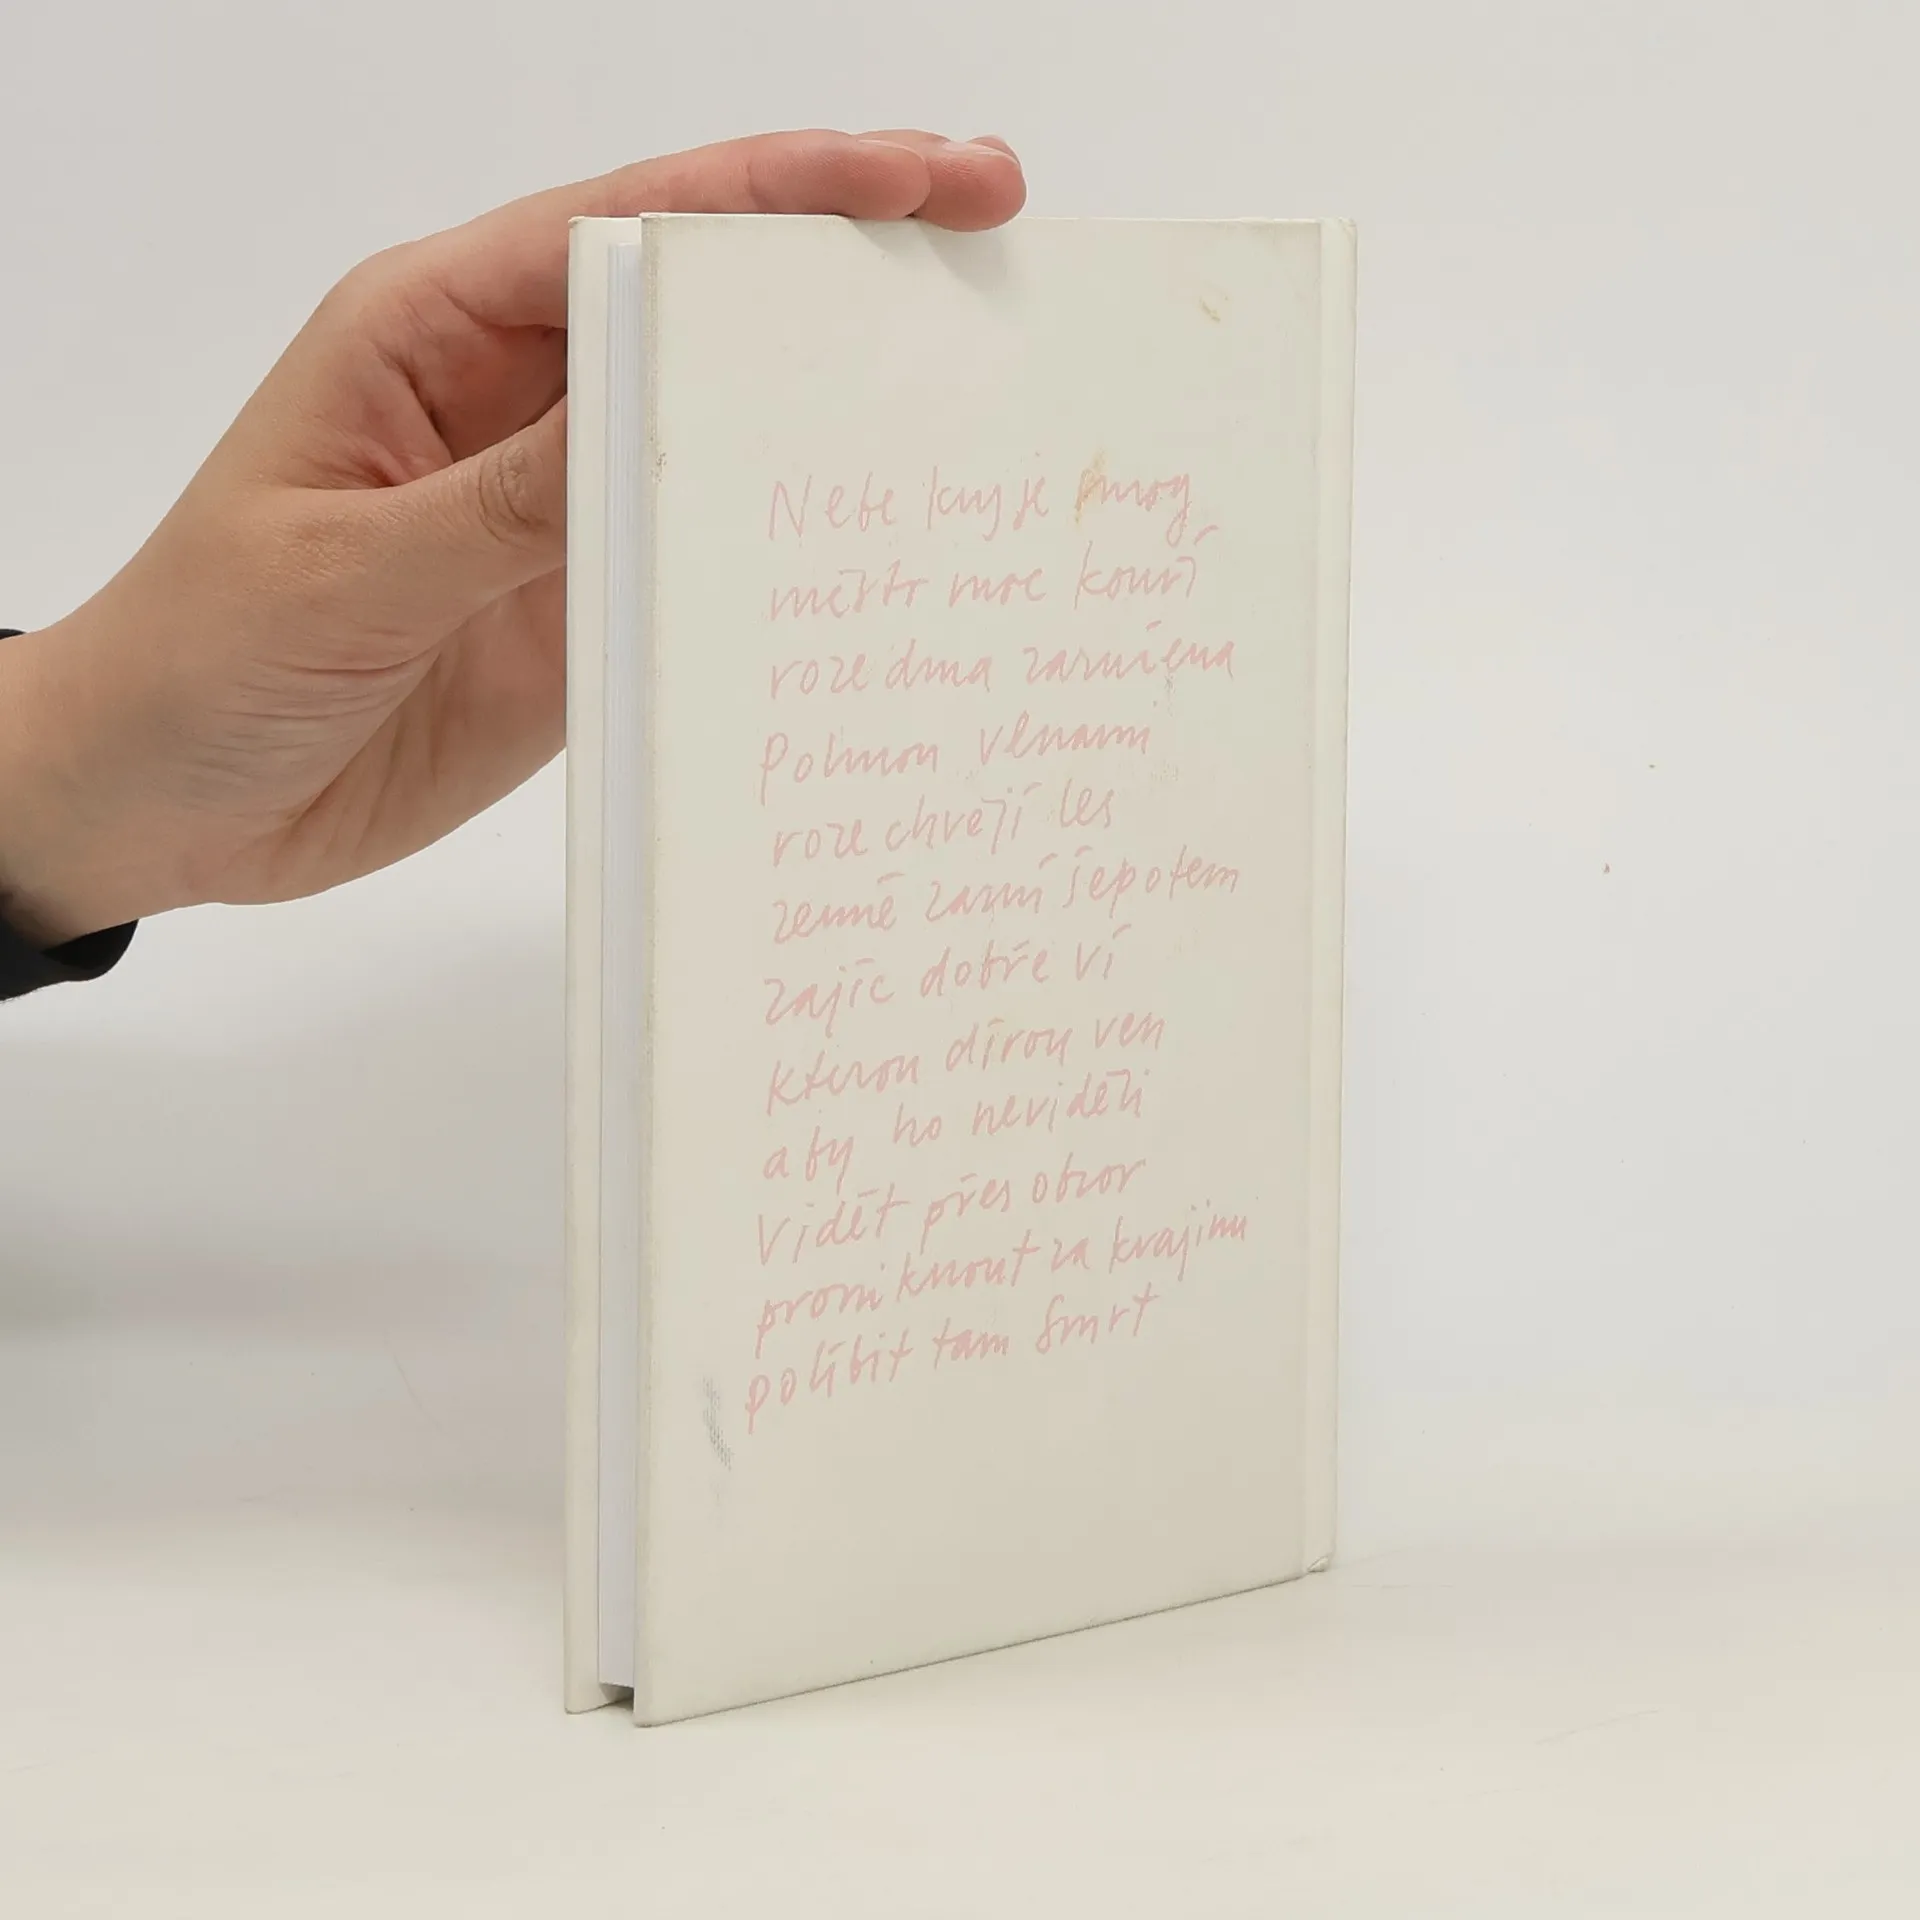 Nebe kryje smog
město moc kouří
rozedma zaručena
Polními vlnami
rozechvějí les
země zazní šepotem
zajíc dobře ví
kterou dírou ven
aby ho neviděli
Vidět přes obzor
proniknout za krajinu
políbit tam Smrt